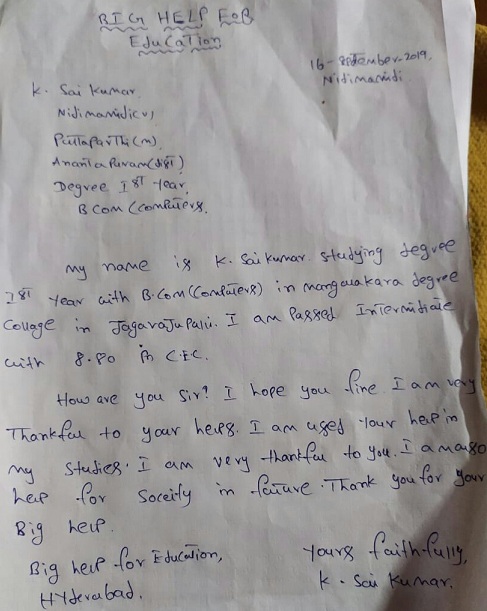 BIG HELP FOR
Education
16-September-2019.
Nidimamidi
K. Sai Kumar
Nidimamidi(v)
Puttaparthi(m)
Anantapuram(dist)
Degree Ist year,
B Com (Computers,
my name is K. Sai Kumar studying degree
Ist year with B.Com (Computers) in mangalakara degree
Collage in Jagarajupalli. I am Passed Intermidiate
with 8.80 in C.E.C.
How are you Sir? I hope you fine I am very
Thankful to your helps. I am used your help in
my studies. I am very thankful to you. I am also
help for Soceity in facture. Thank you for your
Big help.
Big help for Education,
Hyderabad.
yours faithfully,
K. Sai Kumar.